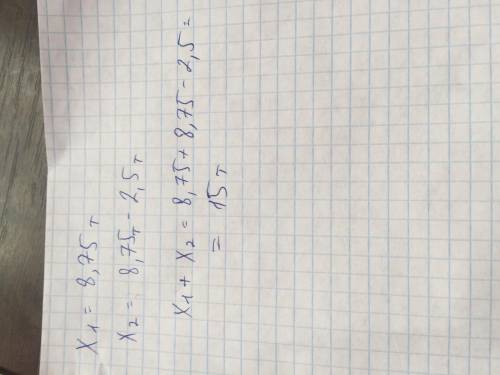 X1 = 8,75т
X2 = 8,75т - 2,5т
X1 + X2 = 8,75 + 8,75 - 2,5 =
= 15т